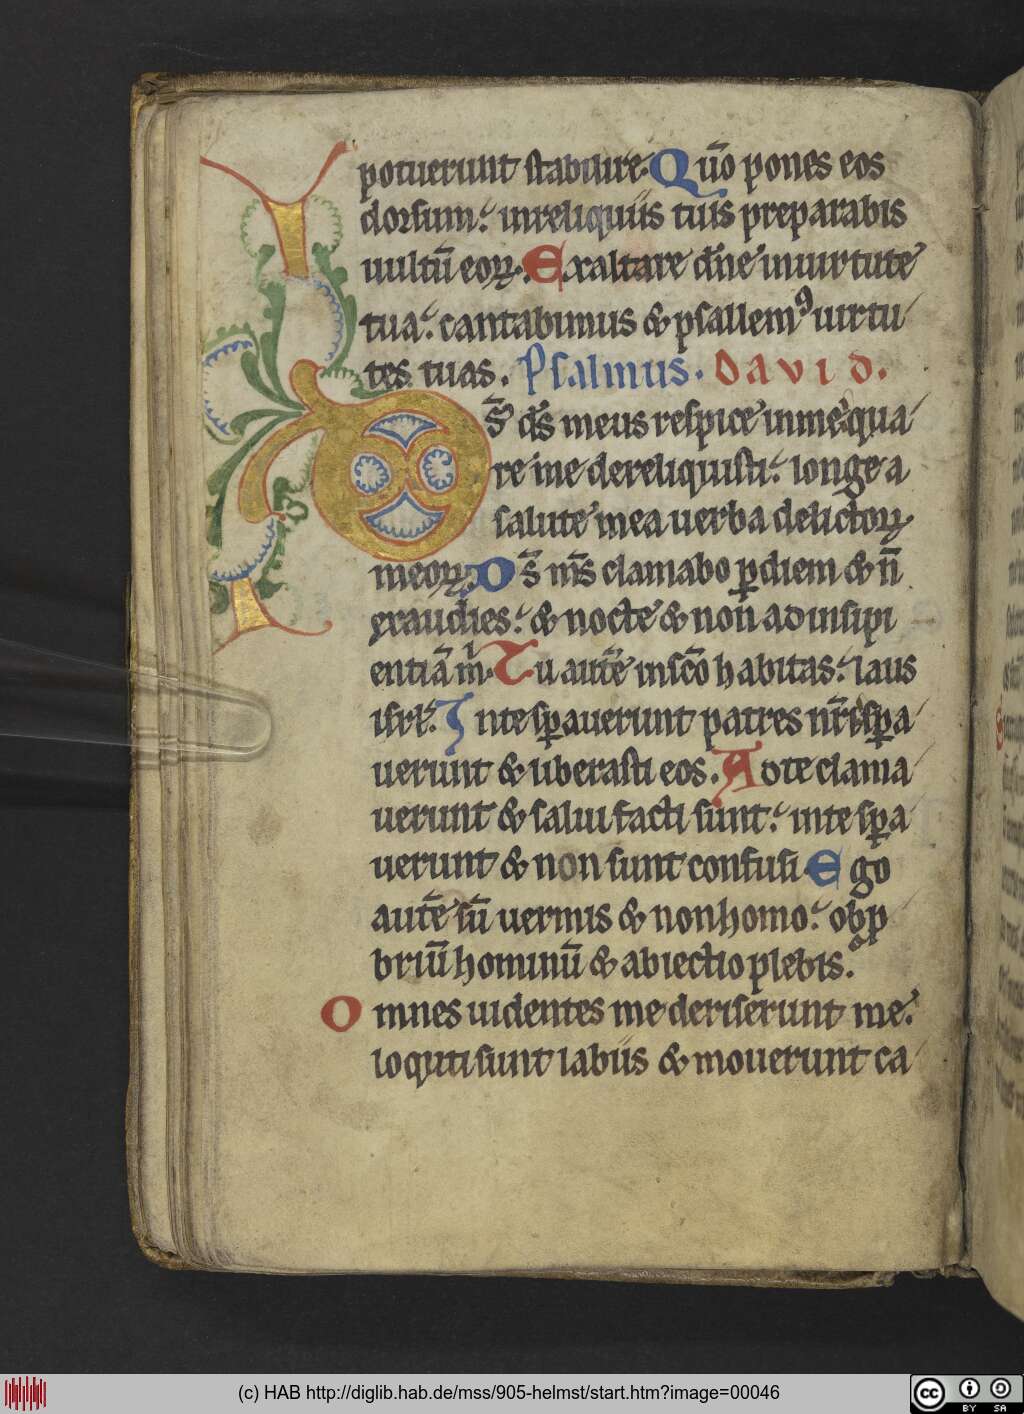 potuerunt stabilire. Qm̄o pones eos
dorsum: inreliquiis tuis preparabis
uultū eoꝝ. Exaltare dn̄e inuirtute
tua: cantabimus & psallemꝰ uirtu
tes tuas. Psalmus. David.
Ds̄ ds̄ meus respice inme qua
re me dereliquisti: longe a
salute mea uerba delictoꝝ
meoꝝ. Ds̄ ms̄ clamabo ꝑ diem & n̄
exaudies: & nocte & non ad insipi
entiā m̄. Tu autē inscō habitas: laus
isrl̄. Inte sꝑauerunt patres nr̄i sꝑa
uerunt & liberasti eos. Ad te clama
uerunt & salui facti sunt: inte sꝑa
uerunt & non sunt confusi Ego
autē sū uermis & non homo: obp
briū hominū & abiectio plebis.
Omnes uidentes me deriserunt me:
loquti sunt labiis & mouerunt ca
(c) HAB http://diglib.hab.de/mss/905-helmst/start.htm?image=00046
CC BY SA